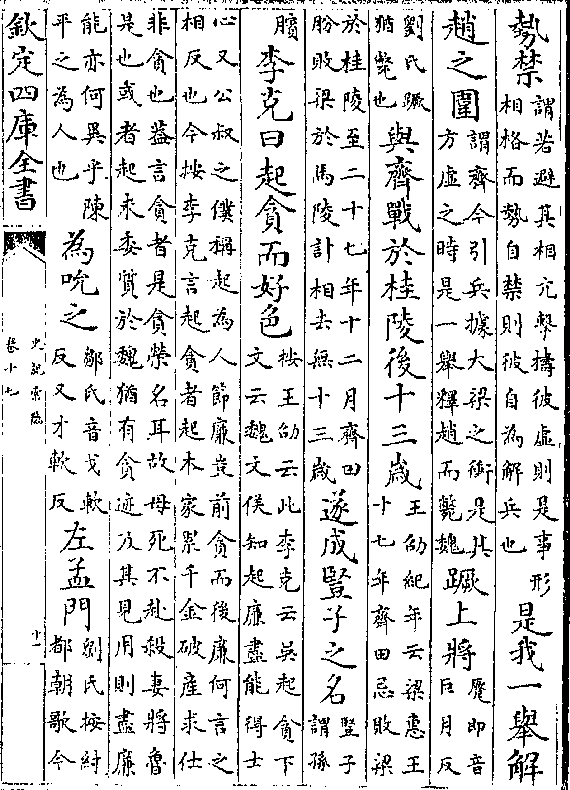 勢禁謂若避其相亢擊擣彼虛則是事形相格而勢自禁則彼自為解兵也是我一舉解
趙之圍謂齊今引兵據大梁之衝是其方虛之時是一舉釋趙而斃魏蹶上將蹷即音巨月反
劉氏蹶猶斃也與齊戰於桂陵後十三歲王劭紀年云梁惠王十七年齊田忌敗梁
於桂陵至二十七年十二月齊田朌敗梁於馬陵計相去無十三歲遂成豎子之名豎子謂孫
臏李克曰起貪而好色按王劭云此李克云吳起貪下文云魏文侯知起廉盡能得士
心又公叔之僕稱起為人節廉豈前貪而後廉何言之相反也今按李克言起貪者起本家累千金破產求仕
非貪也葢言貪者是貪榮名耳故母死不赴殺妻將魯是也或者起未委質於魏猶有貪迹及其見用則盡廉
能亦何異乎陳平之為人也為吮之鄒氏音弋軟反又才軟反左孟門劉氏按紂都朝歌今
欽定四庫全書
史記索隱
卷十七
十一